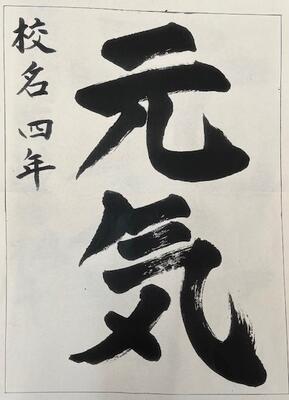 元気
校名 四年